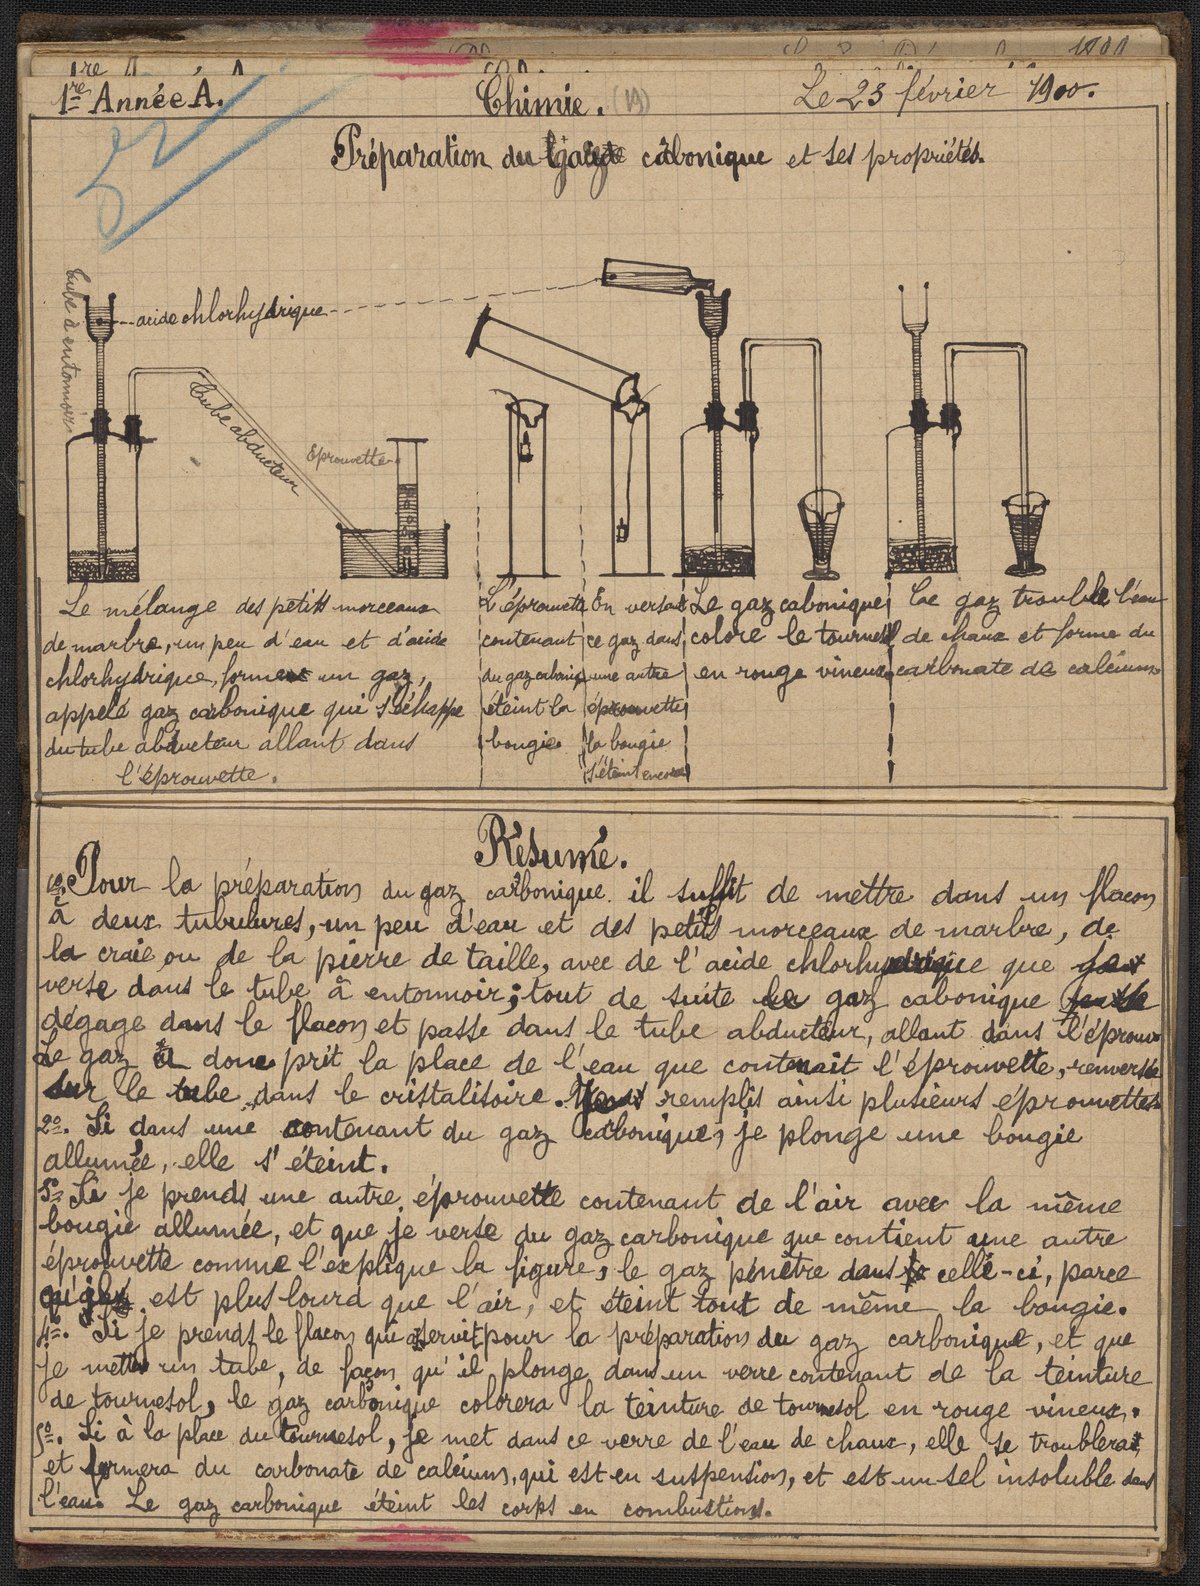 1re Année A.
Chimie. (19)
Le 23 février 1900.
Préparation du Gaz cabonique et ses propriétés.
tube à entonnoir
acide chlorhydrique
Tube abducteur
Eprouvette
Le mélange des petits morceaux
de marbre, un peu d'eau et d'acide
chlorhydrique, forment un gaz,
appelé gaz carbonique qui s'échappe
du tube abducteur allant dans
l'éprouvette.
L'éprouvette
contenant
du gaz carbonique
éteint la
bougie.
En versant
ce gaz dans
une autre
éprouvette
la bougie
s'éteint encore
Le gaz cabonique
colore le tournesol
en rouge vineux.
Ce gaz trouble l'eau
de chaux et forme du
carbonate de calcium.
Résumé.
1o. Pour la préparation du gaz carbonique il suffit de mettre dans un flacon
à deux tubulures, un peu d'eau et des petits morceaux de marbre, de
la craie, ou de la pierre de taille, avec de l'acide chlorhydrique que
verse dans le tube à entonnoir; tout de suite le gaz cabonique
dégage dans le flacon et passe dans le tube abducteur, allant dans l'éprouv
Le gaz a donc prit la place de l'eau que contenait l'éprouvette, renversée
sur le tube dans le cristalisoire. remplis ainsi plusieurs éprouvettes.
2o. Si dans une contenant du gaz carbonique, je plonge une bougie
allumée, elle s'éteint.
3o Si je prends une autre éprouvette contenant de l'air avec la même
bougie allumée, et que je verse du gaz carbonique que contient une autre
éprouvette comme l'explique la figure, le gaz pénètre dans celle-ci, parce
qu'il est plus lourd que l'air, et éteint tout de même la bougie.
4o. Si je prends le flacon qui a servit pour la préparation du gaz carbonique, et que
je mette un tube, de façon qu'il plonge dans un verre contenant de la teinture
de tournesol, le gaz carbonique colorera la teinture de tournesol en rouge vineux.
5o. Si à la place du tournesol, je met dans ce verre de l'eau de chaux, elle se troublerait,
et formera du carbonate de calcium, qui est en suspension, et est un sel insoluble dans
l'eau. Le gaz carbonique éteint les corps en combustion.